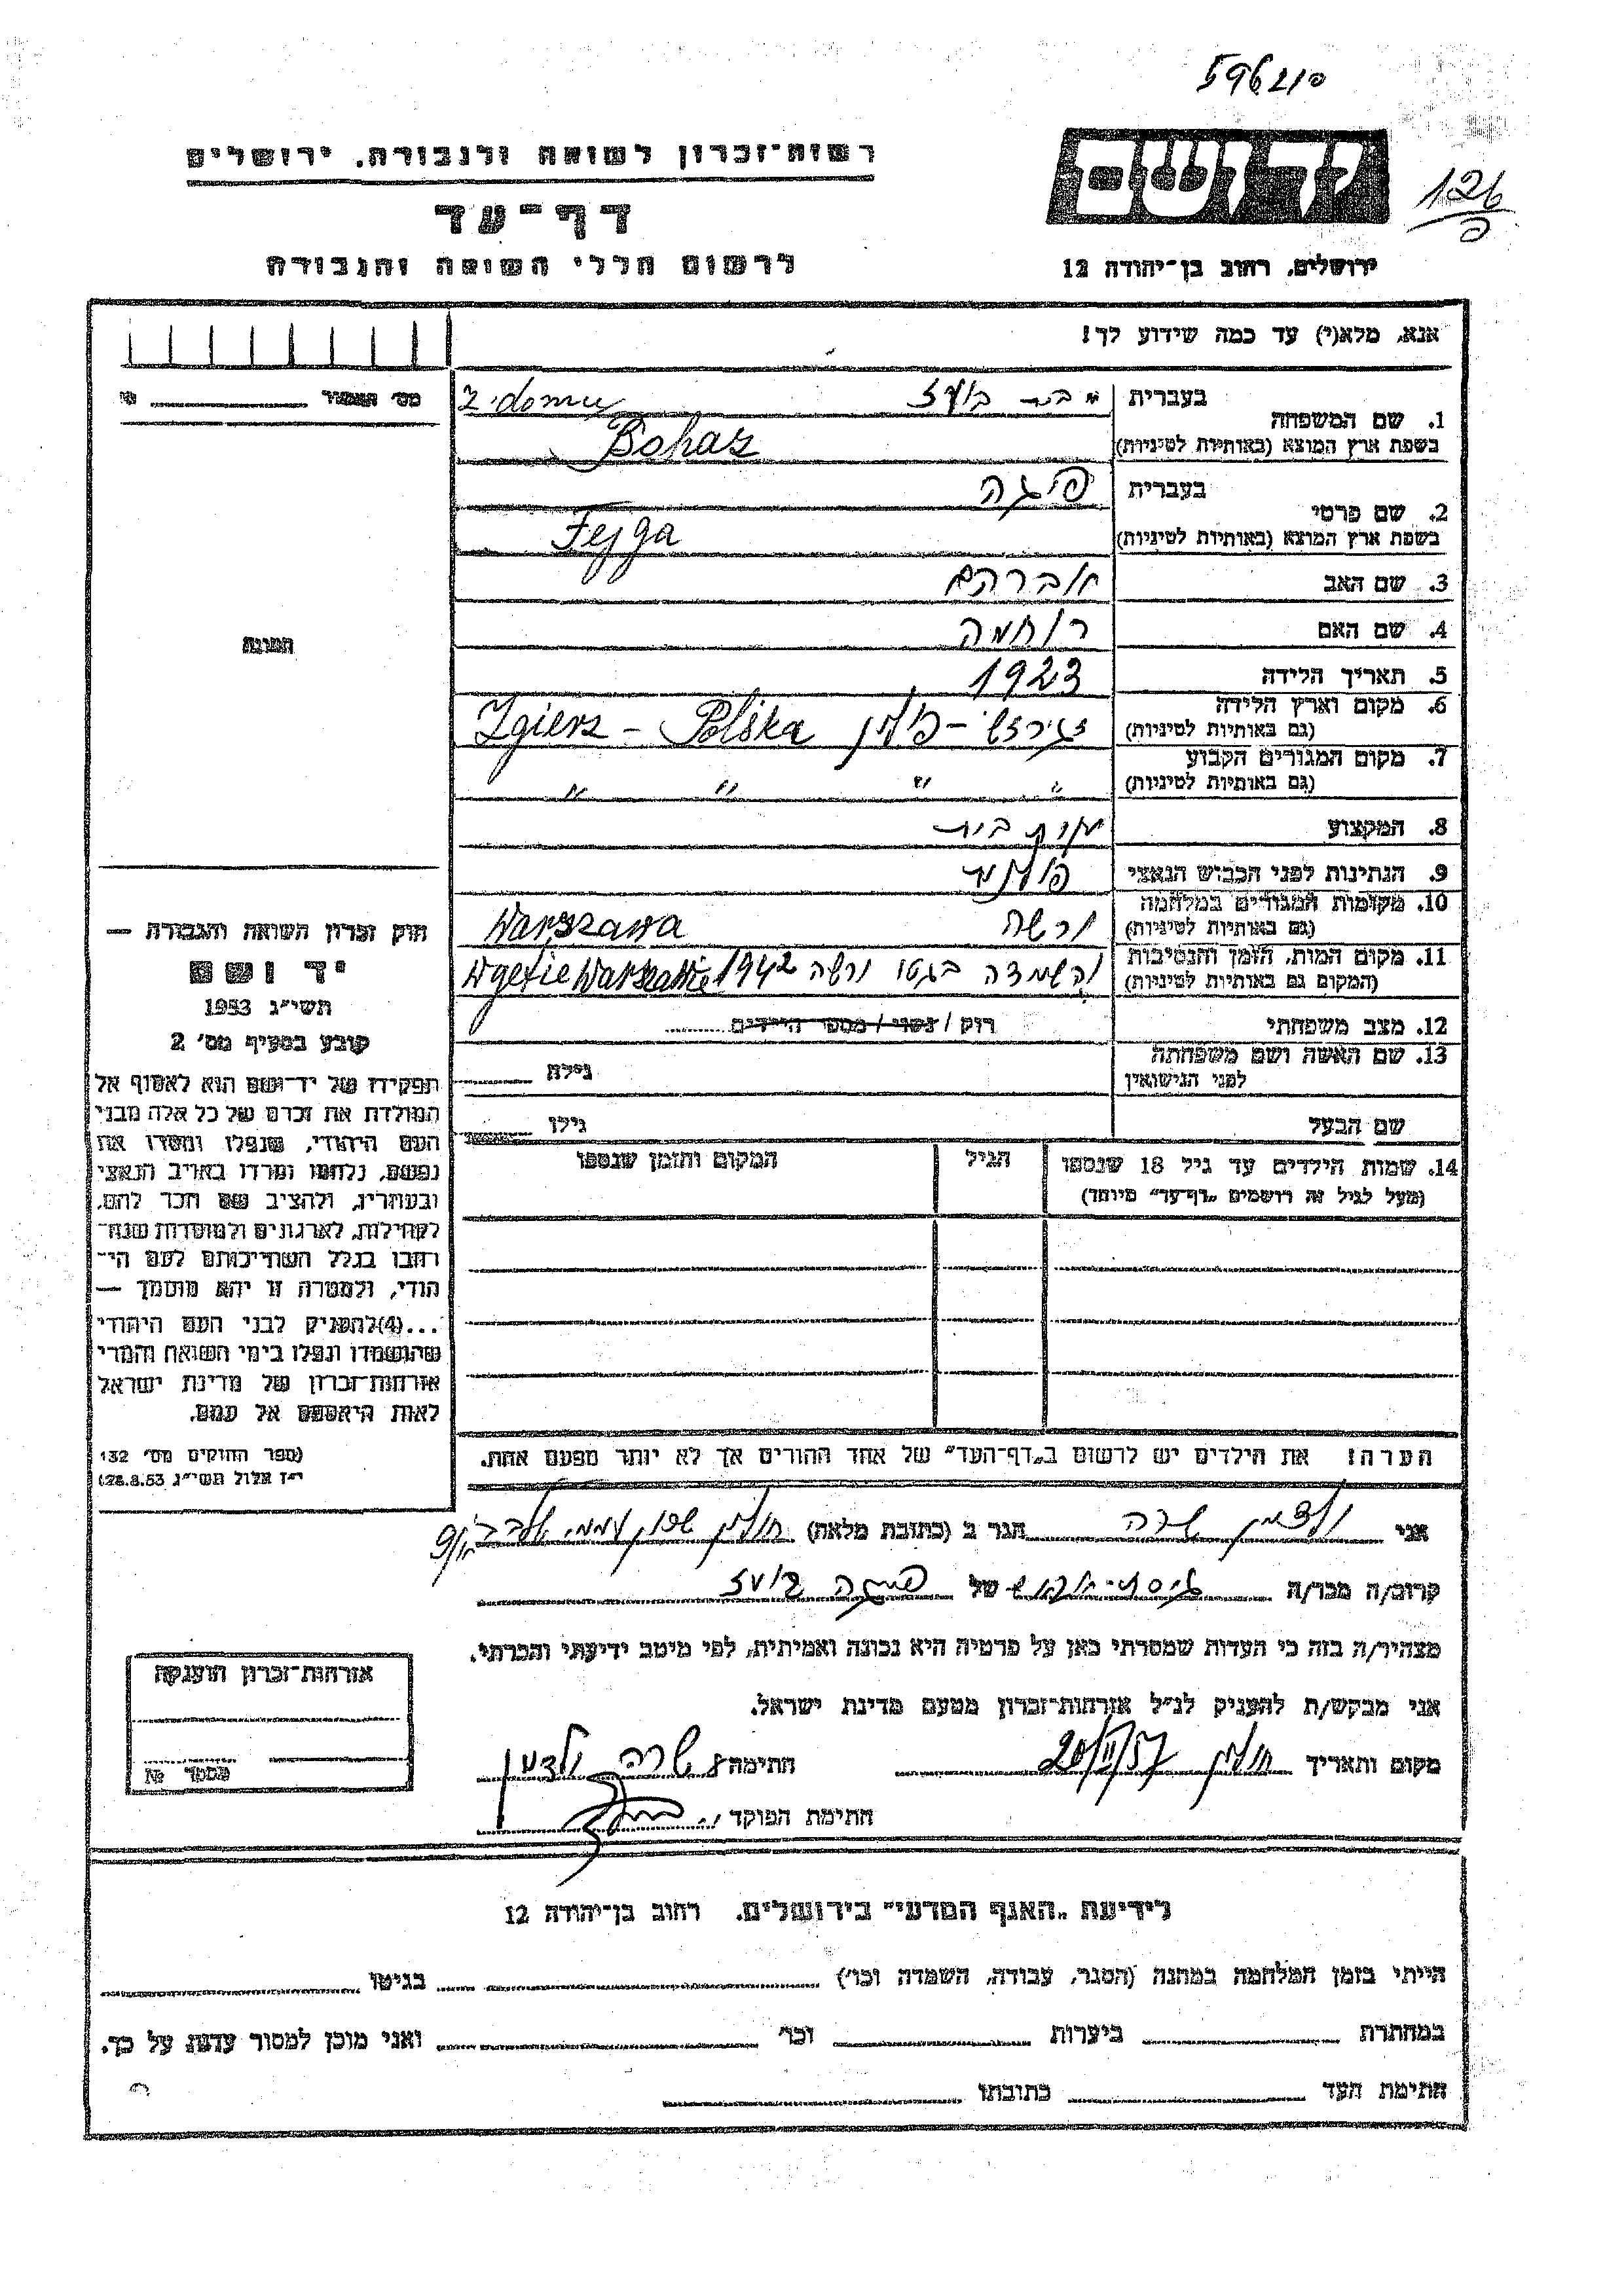 596210
רשות־זכרון לשואה ולגבורה, ירושלים
יד ושם
126
דף־עד
לרשום חללי השואה והגבורה
ירושלים, רחוב בן־יהודה 12
אנא, מלא(י) עד כמה שידוע לך!
1. שם המשפחה
בעברית מבית בועז z domu
בשפת ארץ המוצא (באותיות לטיניות) Bohaz
2. שם פרטי
בעברית פיגה
בשפת ארץ המוצא (באותיות לטיניות) Fejga
3. שם האב אברהם
4. שם האם רוחמה
5. תאריך הלידה 1923
6. מקום וארץ הלידה (גם באותיות לטיניות) זגירז' - פולין Zgierz - Polska
7. מקום המגורים הקבוע (גם באותיות לטיניות) " " " "
8. המקצוע
9. הנתינות לפני הכבוש הנאצי
10. מקומות המגורים במלחמה (גם באותיות לטיניות) ורשה Warszawa
11. מקום המות, הזמן והנסיבות (המקום גם באותיות לטיניות) הושמדה בגטו ורשה 1942 W getie Warszawie
12. מצב משפחתי רווק / נשוי / מספר הילדים
13. שם האשה ושם משפחתה לפני הנישואין גילה
שם הבעל גילו
14. שמות הילדים עד גיל 18 שנספו הגיל המקום והזמן שנספו
(מעל לגיל זה רושמים „דף־עד" מיוחד)
הערה! את הילדים יש לרשום ב„דף־העד" של אחד ההורים אך לא יותר מפעם אחת.
מס' האסיר
תמונה
חוק זכרון השואה והגבורה —
יד ושם
תשי"ג 1953
קובע בסעיף מס' 2
תפקידו של יד־ושם הוא לאסוף אל
המולדת את זכרם של כל אלה מבני
העם היהודי, שנפלו ומסרו את
נפשם, נלחמו ומרדו באויב הנאצי
ובעוזריו, ולהציב שם וזכר להם,
לקהילות, לארגונים ולמוסדות שנח־
רבו בגלל השתייכותם לעם הי־
הודי, ולמטרה זו יהא מוסמך —
...(4)להעניק לבני העם היהודי
שהושמדו ונפלו בימי השואה והמרי
אזרחות־זכרון של מדינת ישראל
לאות היאספם אל עמם.
(ספר החוקים מס' 132
י"ז אלול תשי"ג 28.8.53)
אני ולדמן שרה הגר ב (כתובת מלאה) חולון
קרוב/ה מכר/ה של פיגה בועז
מצהיר/ה בזה כי העדות שמסרתי כאן על פרטיה היא נכונה ואמיתית, לפי מיטב ידיעתי והכרתי.
אני מבקש/ת להעניק לנ"ל אזרחות־זכרון מטעם מדינת ישראל.
מקום ותאריך חולון 20/II/57 חתימה שרה ולדמן
חתימת הפוקד
אזרחות־זכרון הוענקה
מספר №
לידיעת „האגף המדעי" בירושלים. רחוב בן־יהודה 12
הייתי בזמן המלחמה במחנה (הסגר, עבודה, השמדה וכו') בגיטו
במחתרת ביערות וכו' ואני מוכן למסור עדות על כך.
חתימת העד כתובתו